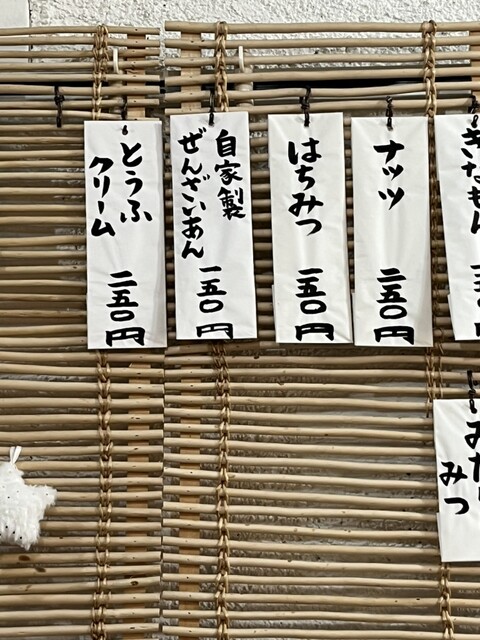 きなもん
ナッツ
二五〇円
はちみつ
一五〇円
自家製
ぜんざいあん
一五〇円
とうふ
クリーム
二五〇円
みつ